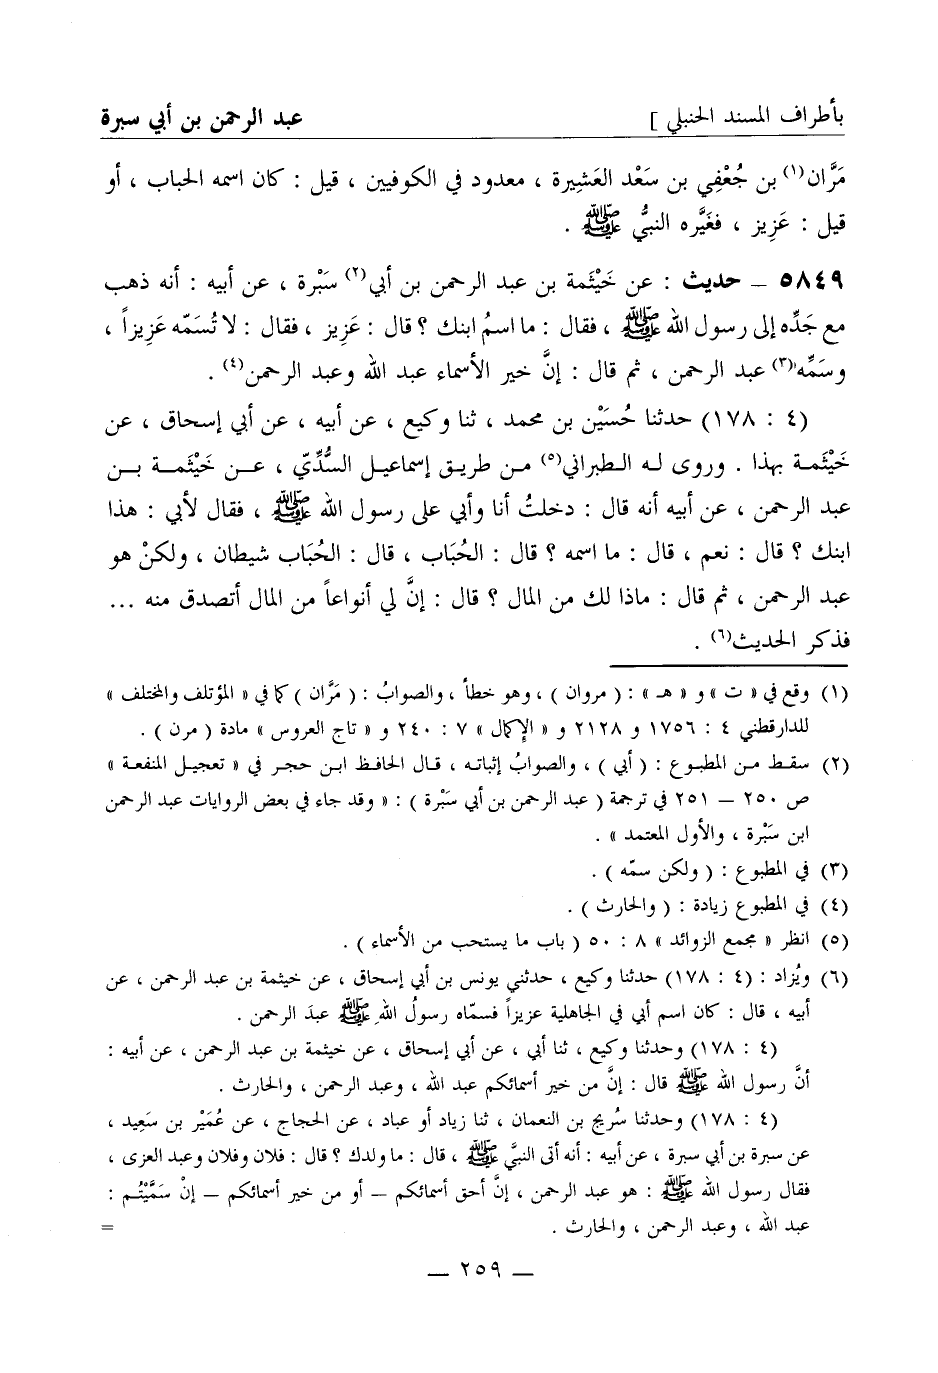 بأطراف المسند الحنبلي ] عبد الرحمن بن أبي سبرة
مَرَّان(١) بن جُعْفِي بن سَعْد العَشِيرة ، معدود في الكوفيين ، قيل : كان اسمه الحباب ، أو
قيل : عَزِيز ، فغَيَّره النبيُّ ﷺ .
٥٨٤٩ – حديث : عن خَيْثَمة بن عبد الرحمن بن أبي(٢) سَبْرة ، عن أبيه : أنه ذهب
مع جَدِّه إلى رسول الله ﷺ ، فقال : ما اسمُ ابنك ؟ قال : عَزِيز ، فقال : لا تُسَمِّه عَزِيزاً ،
وسَمِّه(٣) عبد الرحمن ، ثم قال : إنَّ خير الأسماء عبد الله وعبد الرحمن(٤) .
(٤ : ١٧٨) حدثنا حُسَيْن بن محمد ، ثنا وكيع ، عن أبيه ، عن أبي إسحاق ، عن
خَيْثَمة بهذا . وروى له الطبراني(٥) من طريق إسماعيل السُّدِّي ، عن خَيْثمة بن
عبد الرحمن ، عن أبيه أنه قال : دخلتُ أنا وأبي على رسول الله ﷺ ، فقال لأبي : هذا
ابنك ؟ قال : نعم ، قال : ما اسمه ؟ قال : الحُبَاب ، قال : الحُبَاب شيطان ، ولكنْ هو
عبد الرحمن ، ثم قال : ماذا لك من المال ؟ قال : إنَّ لي أنواعاً من المال أتصدق منه ...
فذكر الحديث(٦) .
(١) وقع في « ت » و « هـ » : ( مروان ) ، وهو خطأ ، والصوابُ : ( مَرَّان ) كما في « المؤتلف والمختلف »
للدارقطني ٤ : ١٧٥٦ و ٢١٢٨ و « الإكمال » ٧ : ٢٤٠ و « تاج العروس » مادة ( مرن ) .
(٢) سقط من المطبوع : ( أبي ) ، والصوابُ إثباته ، قال الحافظ ابن حجر في « تعجيل المنفعة »
ص ٢٥٠ – ٢٥١ في ترجمة ( عبد الرحمن بن أبي سَبْرة ) : « وقد جاء في بعض الروايات عبد الرحمن
ابن سَبْرة ، والأول المعتمد » .
(٣) في المطبوع : ( ولكن سمّه ) .
(٤) في المطبوع زيادة : ( والحارث ) .
(٥) انظر « مجمع الزوائد » ٨ : ٥٠ ( باب ما يستحب من الأسماء ) .
(٦) ويُزاد : (٤ : ١٧٨) حدثنا وكيع ، حدثني يونس بن أبي إسحاق ، عن خيثمة بن عبد الرحمن ، عن
أبيه ، قال : كان اسم أبي في الجاهلية عزيزاً فسمّاه رسولُ اللهِ ﷺ عبدَ الرحمن .
(٤ : ١٧٨) وحدثنا وكيع ، ثنا أبي ، عن أبي إسحاق ، عن خيثمة بن عبد الرحمن ، عن أبيه :
أنَّ رسول الله ﷺ قال : إنَّ من خير أسمائكم عبد الله ، وعبد الرحمن ، والحارث .
(٤ : ١٧٨) وحدثنا سُريج بن النعمان ، ثنا زياد أو عباد ، عن الحجاج ، عن عُمَيْر بن سَعِيد ،
عن سبرة بن أبي سبرة ، عن أبيه : أنه أتى النبيَّ ﷺ ، قال : ما ولدك ؟ قال : فلان وفلان وعبد العزى ،
فقال رسول الله ﷺ : هو عبد الرحمن ، إنَّ أحق أسمائكم – أو من خير أسمائكم – إنْ سَمَّيْتُم :
عبد الله ، وعبد الرحمن ، والحارث . =
– ٢٥٩ –